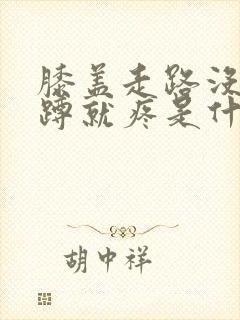 膝盖走路没
蹲就疼是什
胡中祥